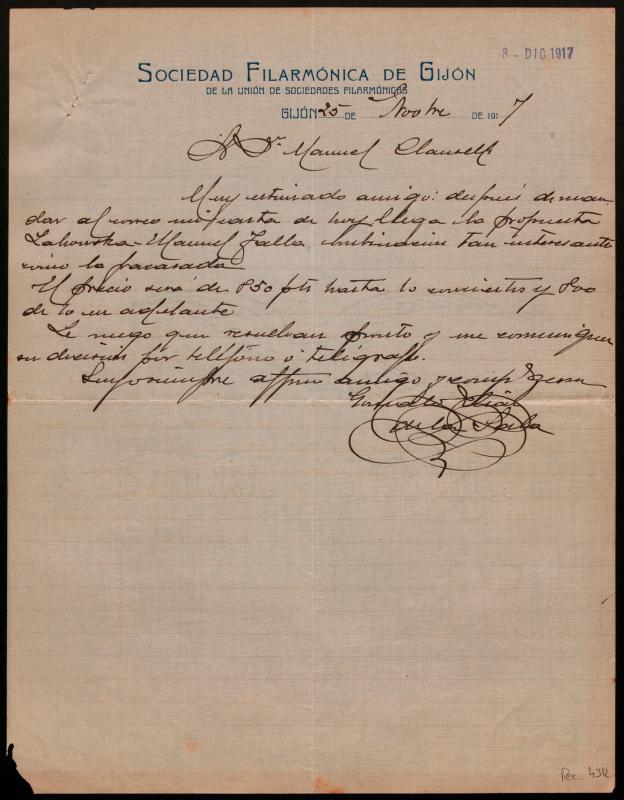 3 - DIC 1917
SOCIEDAD FILARMÓNICA DE GIJÓN
DE LA UNIÓN DE SOCIEDADES FILARMÓNICAS
GIJÓN 25 DE Novbre DE 1917
A Dn. Manuel Clausells
Muy estimado amigo: después de man-
dar al correo mi carta de hoy llega la propuesta
Lahowska-Manuel Falla, combinación tan interesante
como la pasada
El precio será de 850 pts hasta 10 conciertos y 800
de 10 en adelante
Le ruego que resuelvan pronto y me comuniquen
su decisión por teléfono o telégrafo.
Suyo siempre affmo amigo y comp
de la Sala